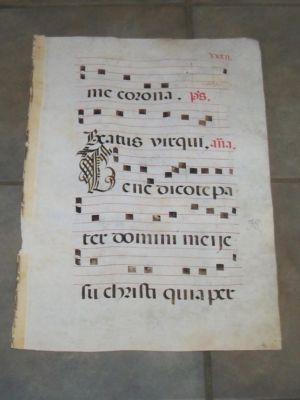 me corona. ps.
Beatus vir qui. aña.
Benedico te pa
ter domini mei je
su christi quia per